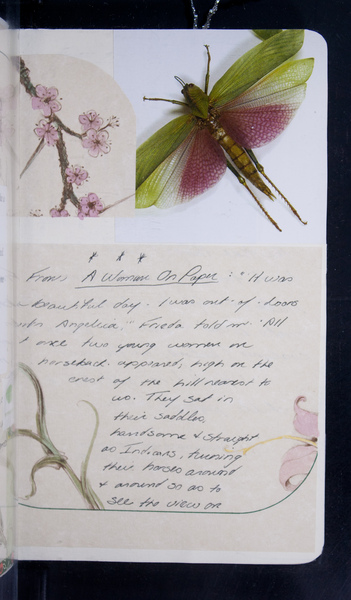 * * *
From A Woman On Paper : "It was
beautiful day. I was out-of-doors
with Angelica," Frieda told me. "All
at once two young women on
horseback appeared, high on the
crest of the hill nearest to
us. They sat in
their saddles,
handsome & straight
as Indians, turning
their horses around
& around so as to
see the view on